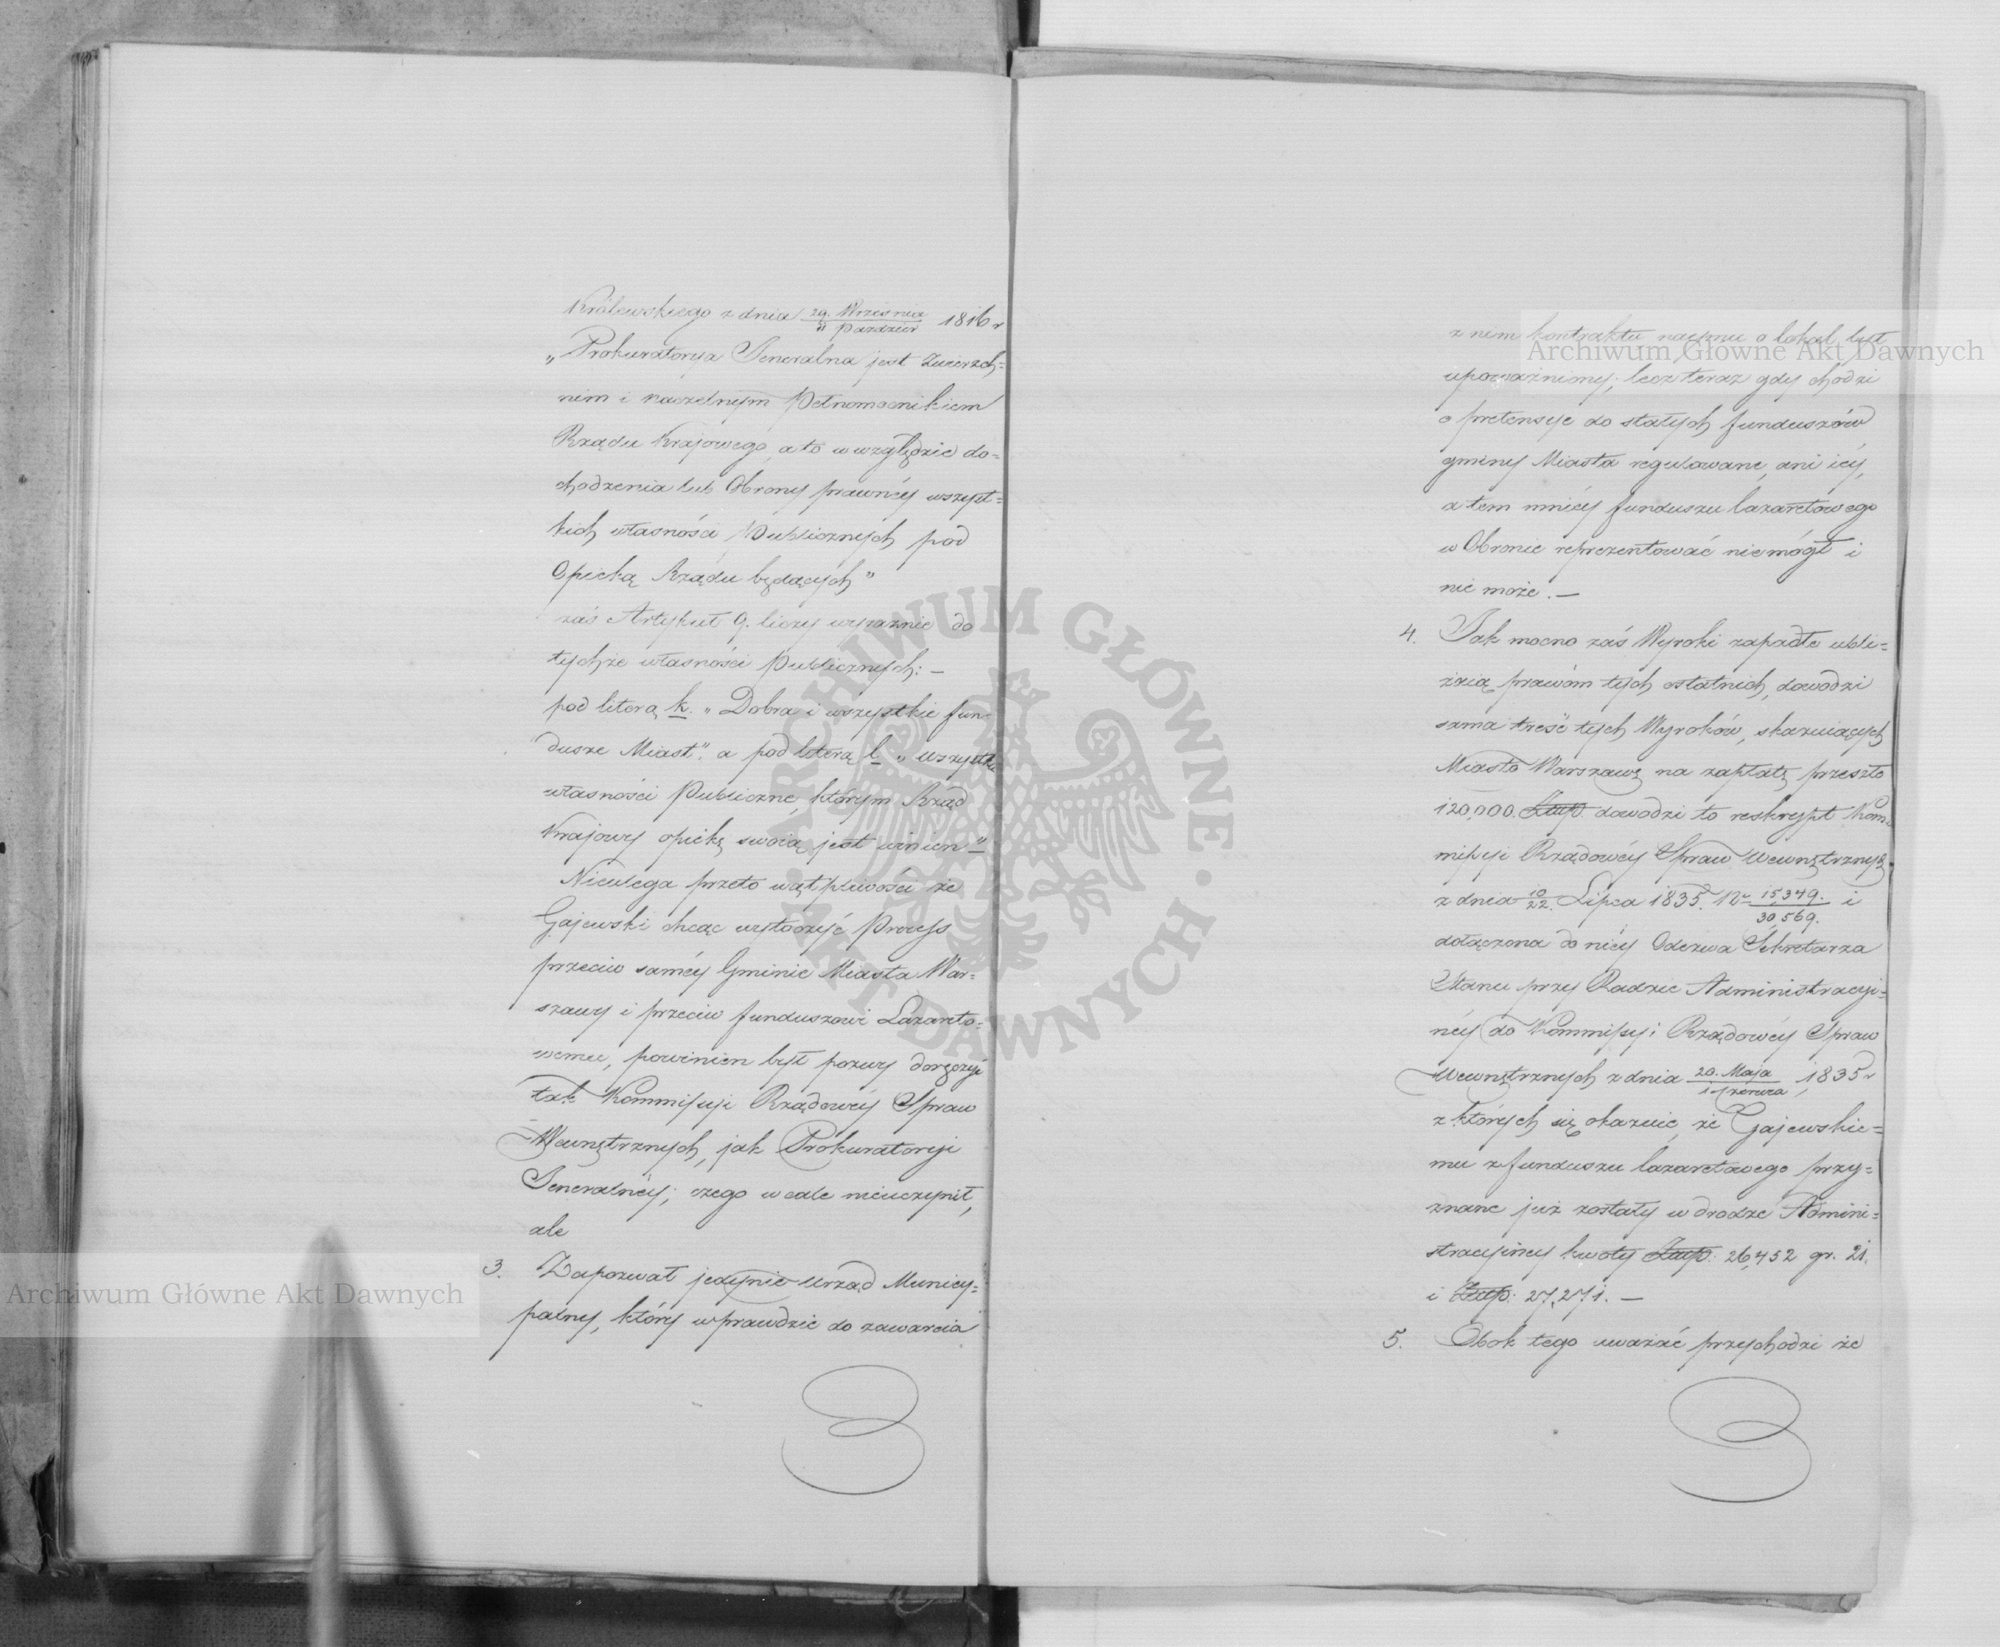 Królewskiego z dnia 29. Września / 11 Paździer 1816 r
„Prokuratorya Generalna jest Zwierzch=
nim i naczelnym Pełnomocnikiem
Rządu Krajowego, a to w względzie do=
chodzenia lub Obrony prawnéy wszyst=
kich własności Publicznych pod
Opieką Rządu będących”
zaś Artykuł 9. liczy wyraznie do
tychże własności Publicznych: —
pod literą k. „Dobra i wszystkie fun=
dusze Miast”. a pod literą l „wszystkie
własności Publiczne, którym Rząd
Krajowy opiekę swoią jest winien”
Nieulega przeto wątpliwości że
Gajewski chcąc wytoczyć Process
przeciw saméy Gminie Miasta War=
szawy i przeciw funduszowi Lazareto=
wemu, powinien był pozwy doręczyć
tak Kommissyi Rządowéy Spraw
Wewnętrznych, jak Prokuratoryi
Generalnéy; czego wcale nieuczynił,
ale
3. Zapozwał jedynie Urząd Municy=
palny, który wprawdzie do zawarcia
z nim kontraktu naymu o lokal, był
upoważniony; lecz teraz gdy chodzi
o pretensye do stałych funduszów
gminy Miasta regulowane, ani iéy,
a tem mniéy funduszu lazaretowego
w Obronie reprezentować niemógł i
nie może. —
4. Jak mocno zaś Wyroki zapadłe ubli=
żaią prawom tych ostatnich, dowodzi
sama treść tych Wyroków, skazuiących
Miasto Warszawę na zapłatę przeszło
120,000. Złtp. dowodzi to reskrypt Kom=
missyi Rządowéy Spraw Wewnętrznych
z dnia 10/22. Lipca 1835. Nr 15,349. / 30,569. i
dołączona do niéy Odezwa Sekretarza
Stanu przy Radzie Administracyi=
néy do Kommissyi Rządowéy Spraw
Wewnętrznych z dnia 20. Maja / 1 Czerwca 1835 r
z których się okazuie, że Gajewskie=
mu z funduszu lazaretowego przy=
znane już zostały w drodze Admini=
stracyinéy kwoty Złtp: 26,452 gr. 21.
i Złtp: 27,271. —
5. Obok tego uważać przychodzi że
Archiwum Główne Akt Dawnych
Archiwum Główne Akt Dawnych
ARCHIWUM GŁÓWNE AKT DAWNYCH